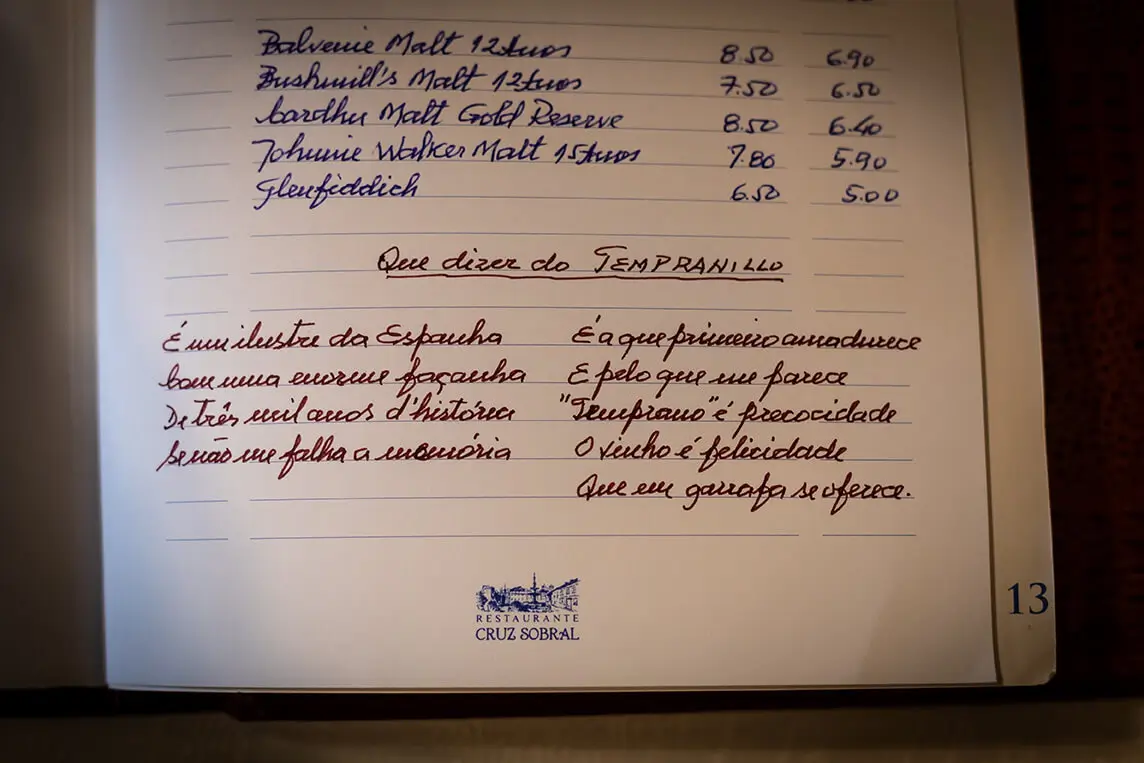 Balvenie Malt 12 Anos 8.50 6.90
Bushmill's Malt 12 Anos 7.50 6.50
Cardhu Malt Gold Reserve 8.50 6.40
Johnnie Walker Malt 15 Anos 7.80 5.90
Glenfiddich 6.50 5.00
Que dizer do TEMPRANILLO
É um ilustre da Espanha
Com uma enorme façanha
De três mil anos d'história
Se não me falha a memória
É a que primeiro amadurece
E pelo que me parece
"Temprano" é precocidade
O vinho é felicidade
Que em garrafa se oferece.
RESTAURANTE
CRUZ SOBRAL
13